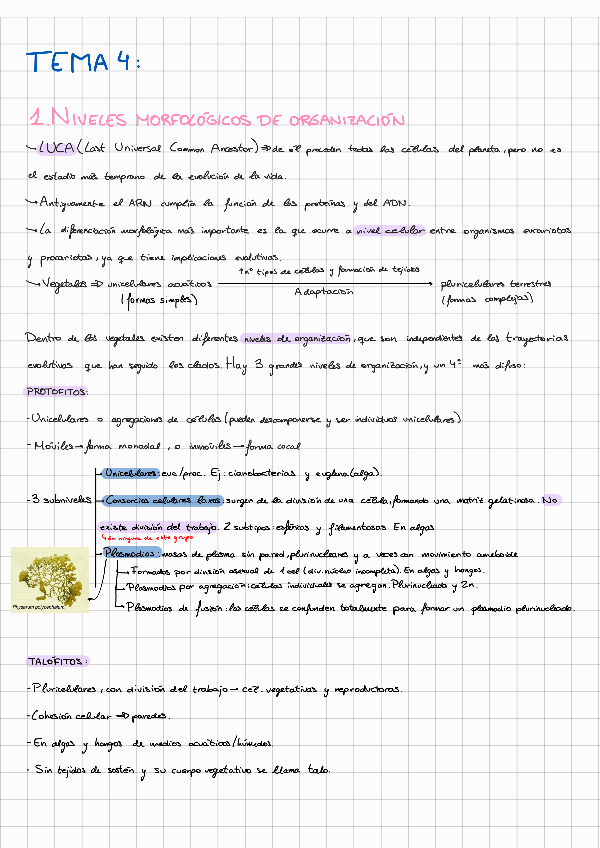 TEMA 4:
1. NIVELES MORFOLÓGICOS DE ORGANIZACIÓN
↳ LUCA (Last Universal Common Ancestor) ⇒ de él proceden todas las células del planeta, pero no es
el estadio más temprano de la evolución de la vida.
↳ Antiguamente el ARN cumplía la función de las proteínas y del ADN.
↳ La diferenciación morfológica más importante es la que ocurre a nivel celular entre organismos eucariotas
y procariotas, ya que tiene implicaciones evolutivas.
↑nº tipos de células y formación de tejidos
↳ Vegetales ⇒ unicelulares acuáticos → pluricelulares terrestres
(formas simples) Adaptación (formas complejas)
Dentro de los vegetales existen diferentes niveles de organización, que son independientes de las trayectorias
evolutivas que han seguido los clados. Hay 3 grandes niveles de organización, y un 4º más difuso:
PROTOFITOS:
- Unicelulares o agregaciones de células (pueden descomponerse y ser individuos unicelulares)
- Móviles → forma monadal, o inmóviles → forma cocal
Unicelulares: euc/proc. Ej: cianobacterias y euglena (alga).
- 3 subniveles Consorcios celulares laxos: surgen de la división de una célula, formando una matriz gelatinosa. No
existe división del trabajo. 2 subtipos: esféricos y filamentosas. En algas
↳ en ninguna de este grupo
Plasmodios: masas de plasma sin pared, plurinucleares y a veces con movimiento ameboide
Formados por división asexual de 1 cel (div. núcleo incompleta). En algas y hongos.
Plasmodios por agregación: células individuales se agregan. Plurinucleado y 2n.
Physarum polycephalum
Plasmodios de fusión: las células se confunden totalmente para formar un plasmodio plurinucleado.
TALÓFITOS:
- Pluricelulares, con división del trabajo → cel. vegetativas y reproductoras.
- Cohesión celular ⇒ paredes.
- En algas y hongos de medios acuáticos/húmedos
- Sin tejidos de sostén y su cuerpo vegetativo se llama talo.